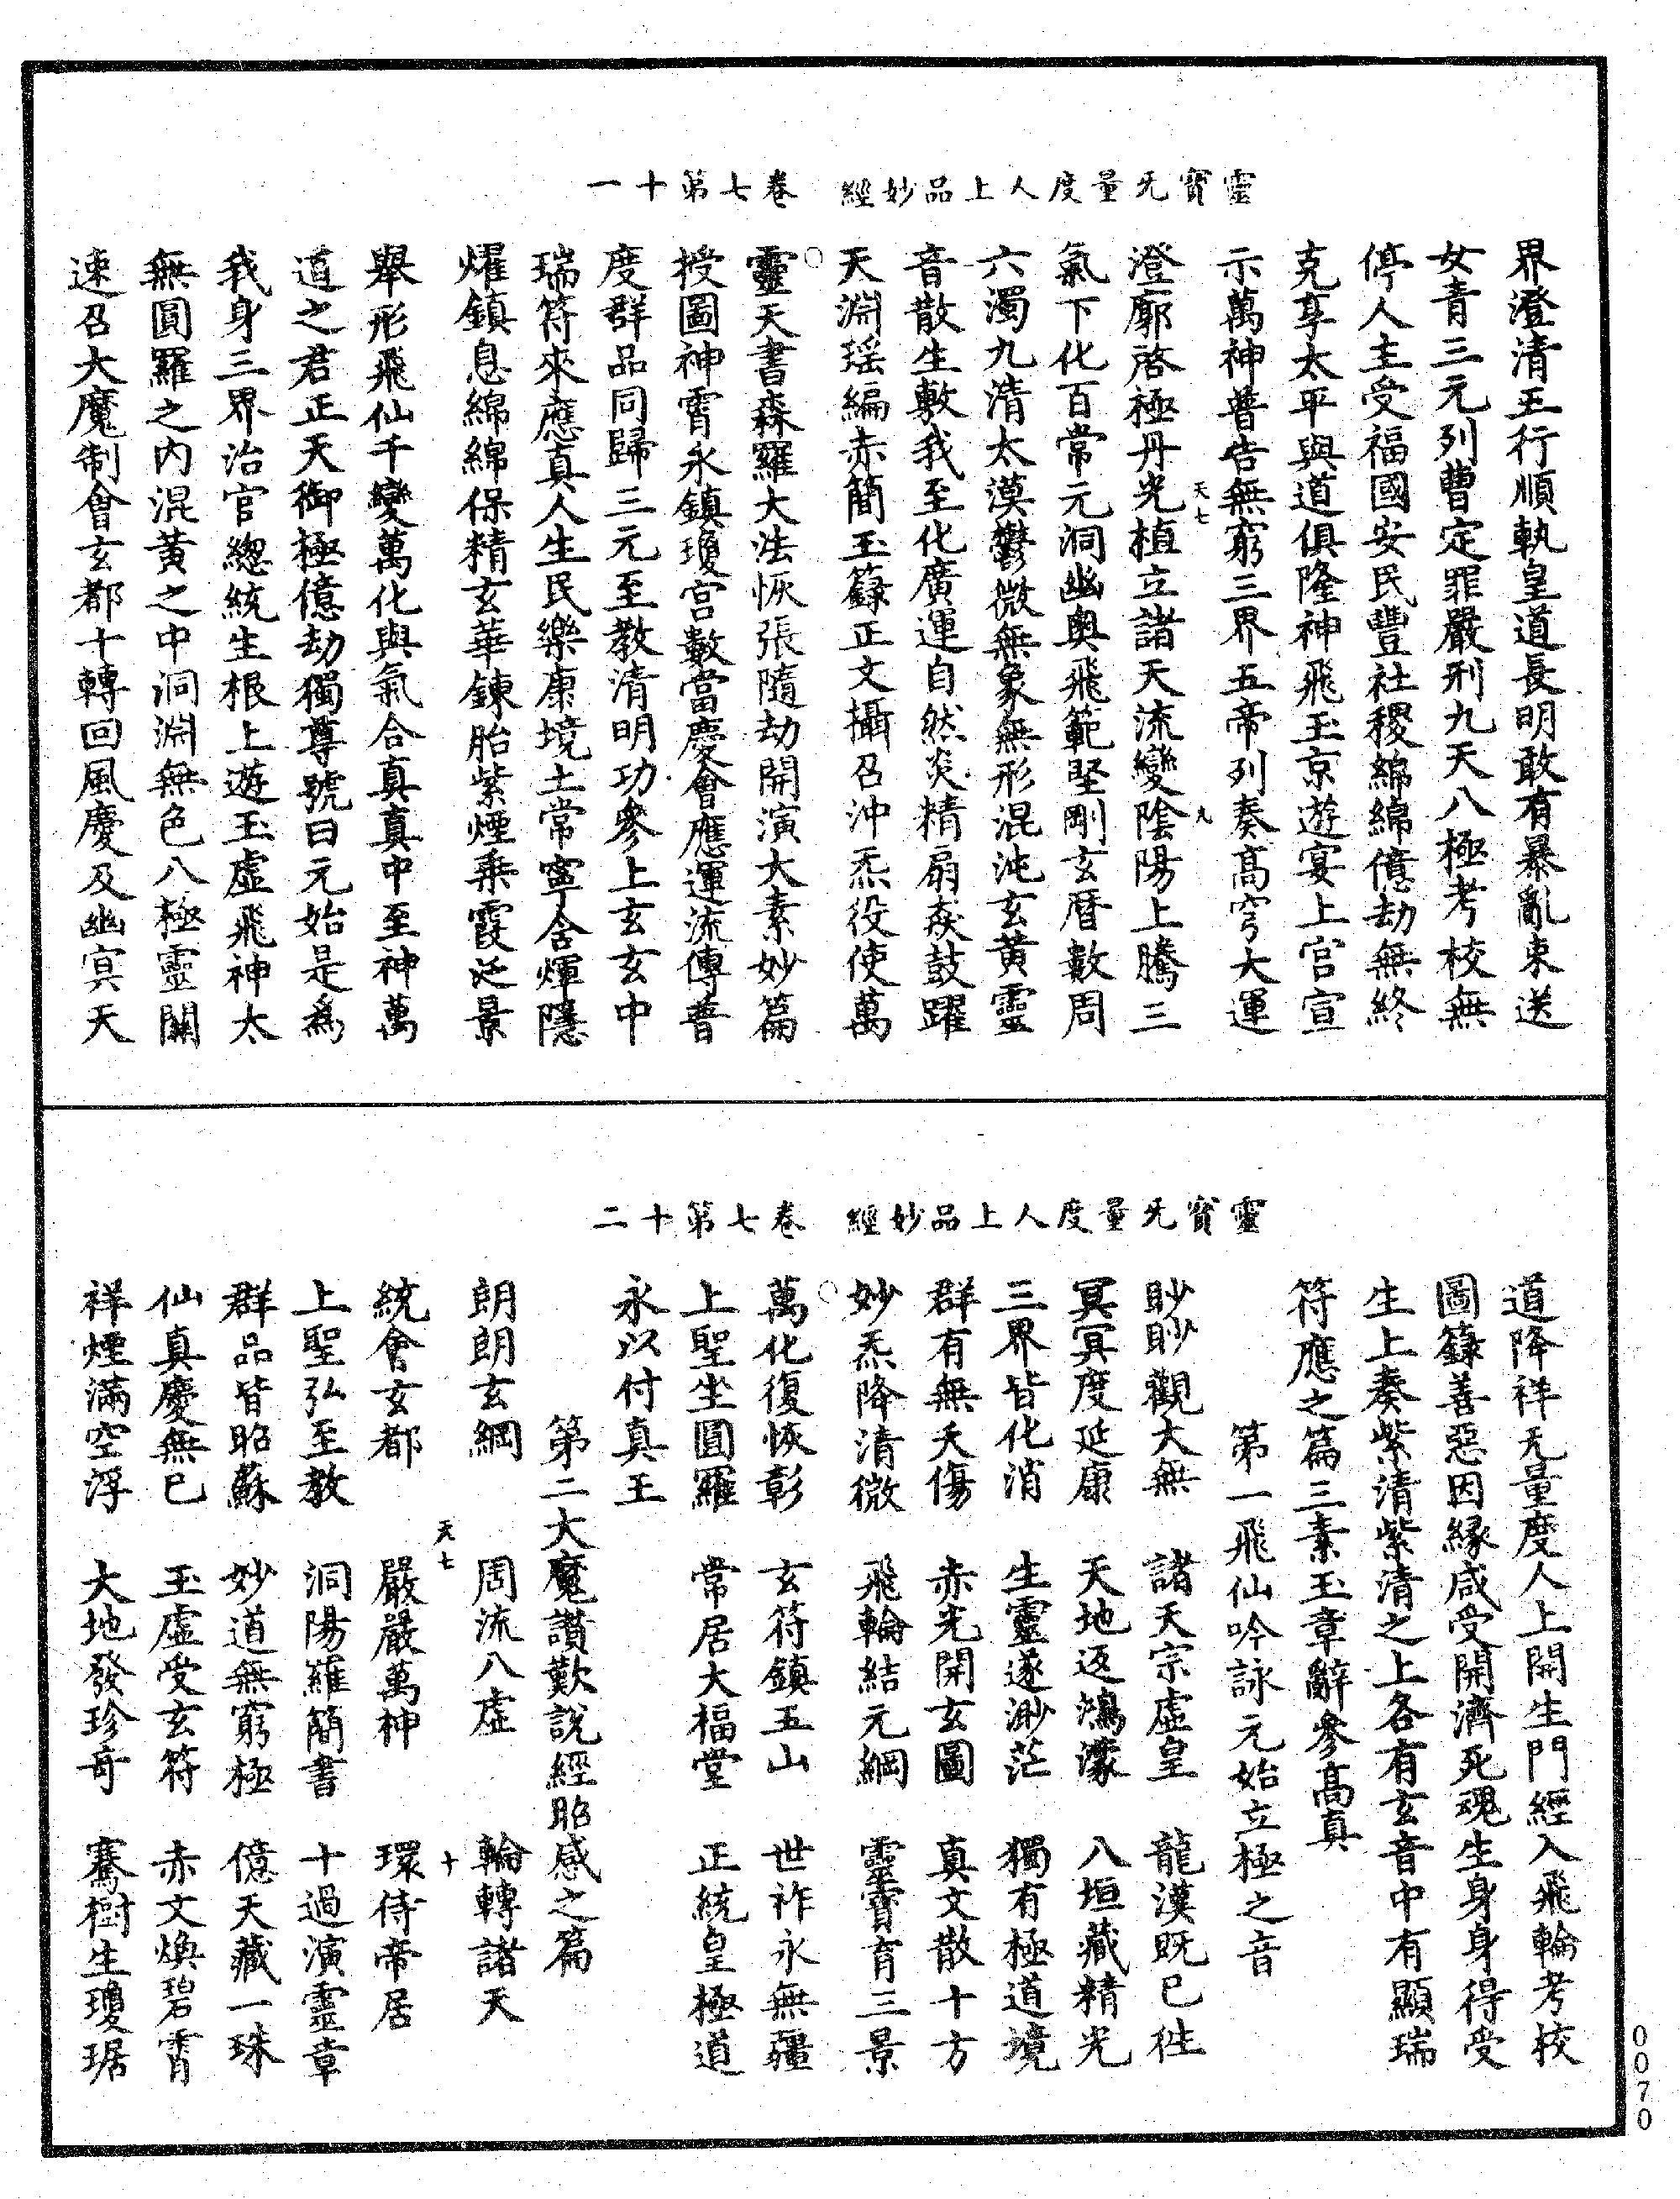 靈寶无量度人上品妙經　卷七第十一
界澄清王行順執皇道長明敢有暴亂束送
女青三元列曹定罪嚴刑九天八極考校無
停人主受福國安民豐社稷綿綿億劫無終
克享太平與道俱隆神飛玉京遊宴上宮宣
示萬神普告無窮三界五帝列奏高穹大運
天七　九
澄廓啓極丹光植立諸天流變陰陽上騰三
氣下化百常元洞幽奧飛範堅剛玄曆數周
六濁九清太漠鬱微無象無形混沌玄黃靈
音散生敷我至化廣運自然炎精扇焱鼓躍
天淵瑶編赤簡玉籙正文攝召沖炁役使萬
靈天書森羅大法恢張隨劫開演大素妙篇
授圖神霄永鎮瓊宮數當慶會應運流傳普
度群品同歸三元至教清明功參上玄玄中
瑞符來應真人生民樂康境土常寧含煇隱
燿鎮息綿綿保精玄華鍊胎紫煙乗霞泛景
舉形飛仙千變萬化與氣合真真中至神萬
道之君正天御極億劫獨尊號曰元始是為
我身三界治官緫統生根上遊玉虛飛神太
無圓羅之內混黃之中洞淵無色八極靈關
速召大魔制會玄都十轉回風慶及幽冥天
靈寶无量度人上品妙經　卷七第十二
道降祥无量度人上開生門經入飛輪考校
圖籙善惡因緣咸受開濟死魂生身身得受
生上奏紫清紫清之上各有玄音中有顯瑞
符應之篇三素玉章辭參高真
第一飛仙吟詠元始立極之音
眇眇觀大無　諸天宗虛皇　龍漢既已徃
冥冥度延康　天地返鴻濛　八垣藏精光
三界皆化消　生靈遂渺茫　獨有極道境
群有無夭傷　赤光開玄圖　真文散十方
妙炁降清微　飛輪結元綱　靈寶育三景
萬化復恢彰　玄符鎮五山　世祚永無疆
上聖坐圓羅　常居大福堂　正統皇極道
永以付真王
第二大魔讃歎說經昭感之篇
朗朗玄綱　周流八虛　輪轉諸天
天七　十
統會玄都　嚴嚴萬神　環侍帝居
上聖弘至教　洞陽羅簡書　十過演靈章
群品皆昭蘇　妙道無窮極　億天藏一珠
仙真慶無已　玉虛受玄符　赤文煥碧霄
祥煙滿空浮　大地發珍奇　騫樹生瓊琚
0070